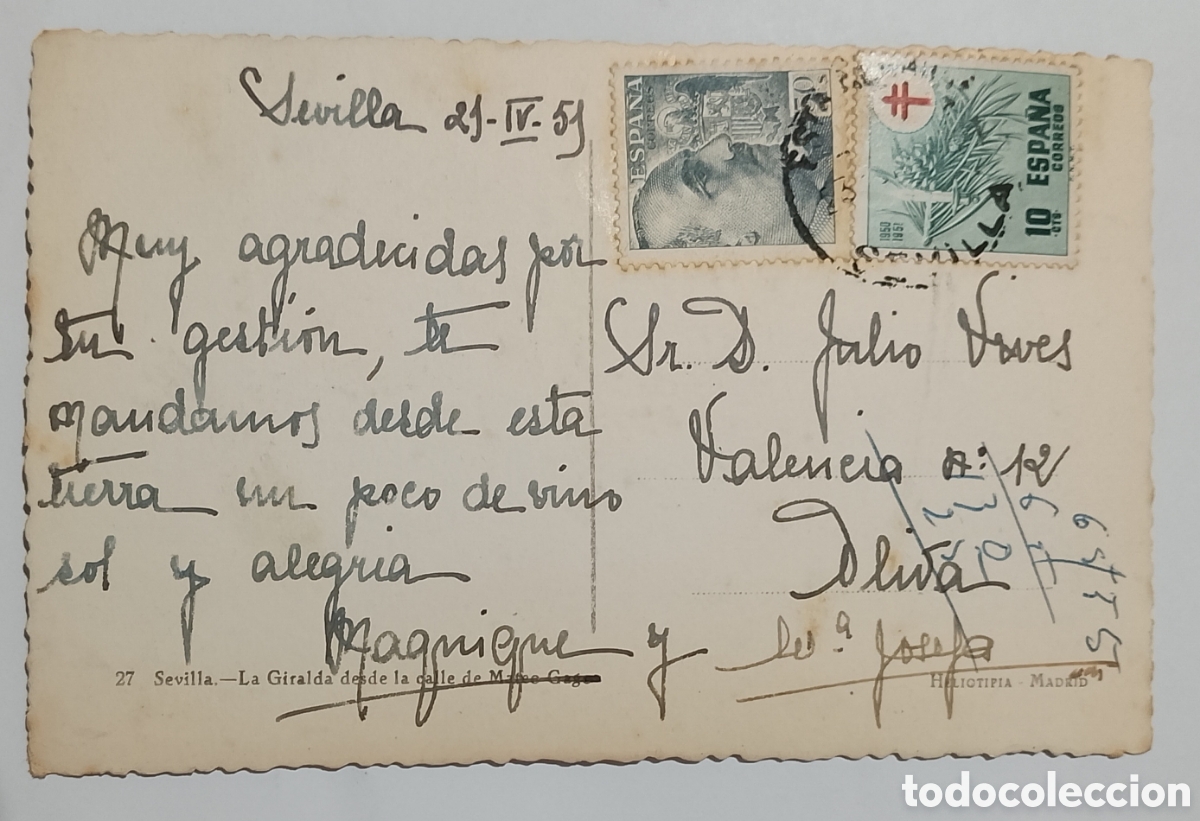 Sevilla 25-IV-51
Muy agradecidas por
tu gestión, te
mandamos desde esta
tierra un poco de vino
sol y alegria
y Mª Josefa
Sr. D. Julio Vives
Valencia nº 12
Oliva
ESPAÑA
CORREOS
50
ESPAÑA
CORREOS
10 CTS
1950
1951
SEVILLA
27 Sevilla.—La Giralda desde la calle de Mateo Gago
HELIOTIPIA - MADRID
todocoleccion